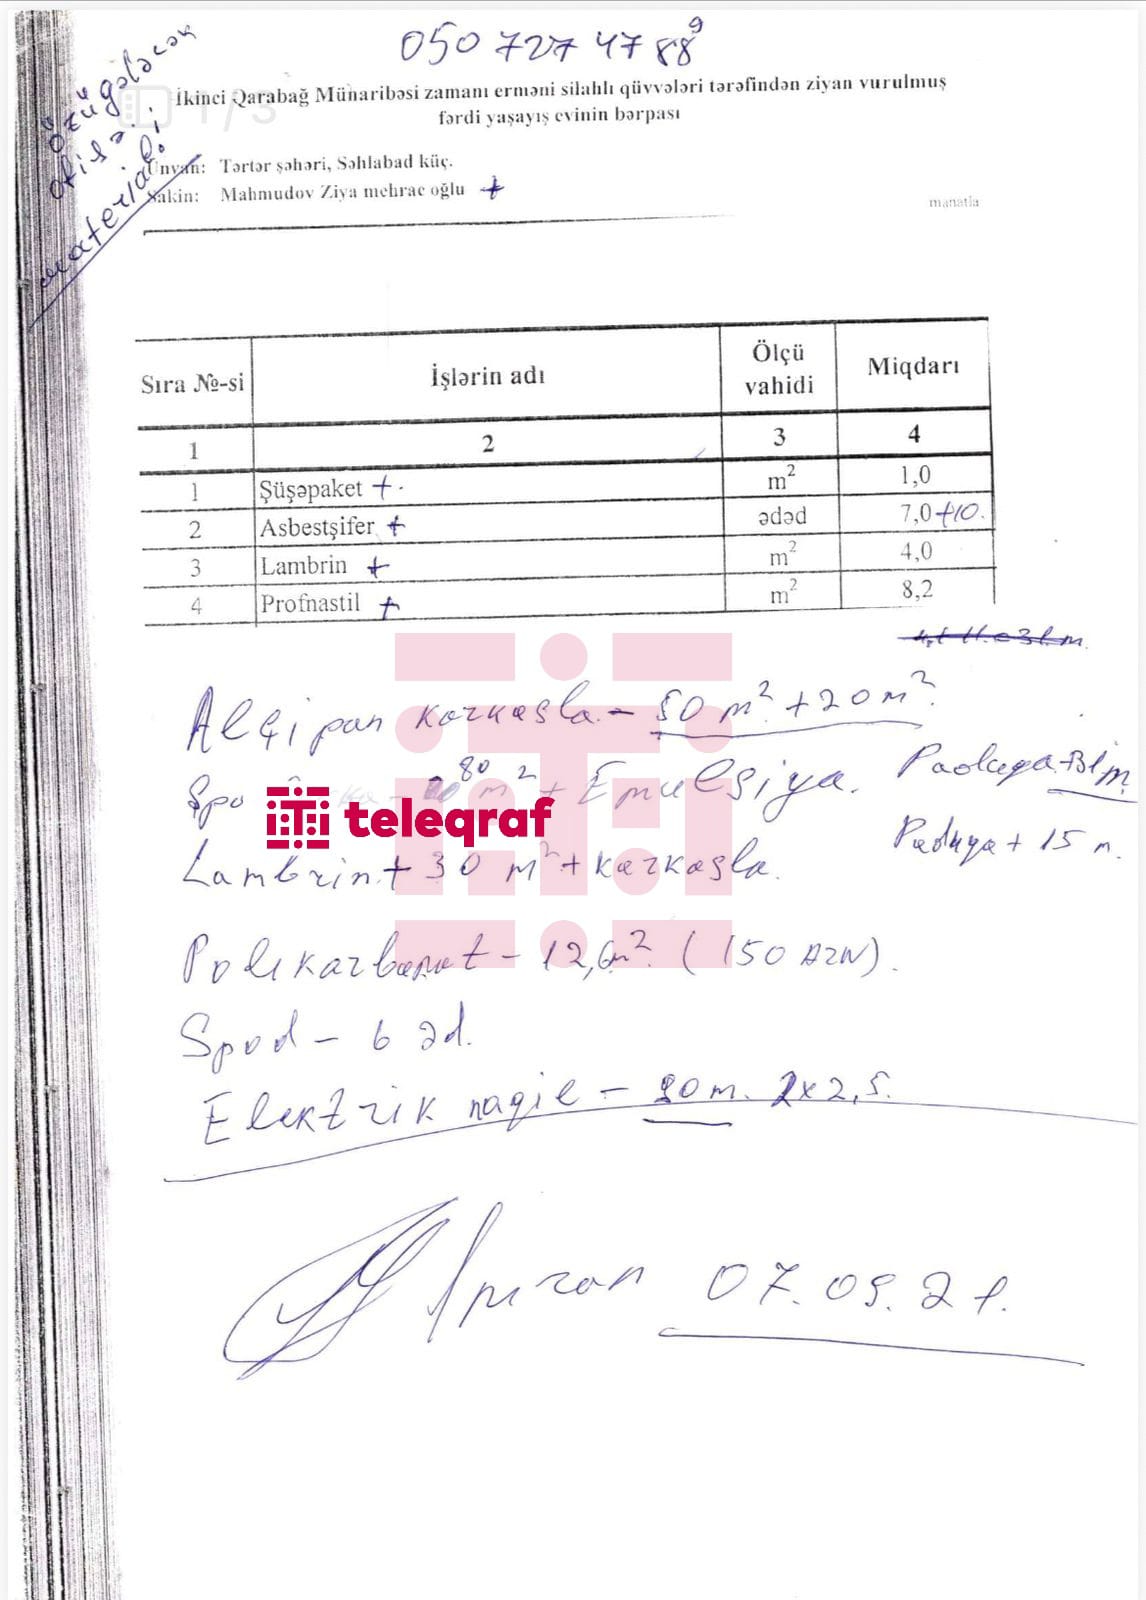 050 727 47 88 9
özü gələcək
ofisə
material!
1/3
İkinci Qarabağ Münaribəsi zamanı erməni silahlı qüvvələri tərəfindən ziyan vurulmuş
fərdi yaşayış evinin bərpası
Ünvan: Tərtər şəhəri, Səhlabad küç.
Sakin: Mahmudov Ziya mehrac oğlu +
manatla
Sıra №-si İşlərin adı Ölçü vahidi Miqdarı
1 2 3 4
1 Şüşəpaket + m² 1,0
2 Asbestşifer + ədəd 7,0 +10.
3 Lambrin + m² 4,0
4 Profnastil + m² 8,2
Alçipan karkasla - 50 m² + 20 m².
80 m² + Emulsiya. Paduqa
Paduqa + 15 m.
Lambrin + 30 m² + karkasla.
Polikarbanat - 12,6m². (150 AZN).
Spod - 6 əd.
Elektrik naqil - m. 2x2,5.
07.09.21.
teleqraf